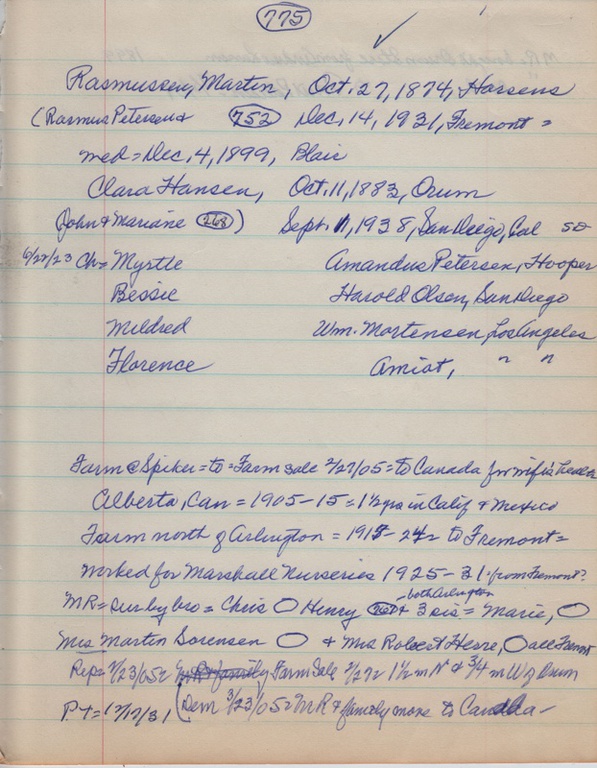 775
Rasmussen, Martin, Oct. 27, 1874, Horsens
(Rasmus Petersen & 752 Dec. 14, 1931, Fremont =
med = Dec. 4, 1899, Blair
Clara Hansen, Oct. 11, 1883, Orum
(John & Mariane 268) Sept. 11, 1938, San Diego, Cal
6/22/23 Ch = Myrtle Amandus Petersen, Hooper
Bessie Harold Olsen, San Diego
Mildred Wm. Mortensen, Los Angeles
Florence Amiot, " "
Farm @ Spiker = to = Farm sale 2/27/05 = to Canada for wife's health
Alberta, Can = 1905-15 = 1 1/2 yrs in Calif & Mexico
Farm north of Arlington = 1915-24 = to Fremont =
worked for Marshall Nurseries 1925-31 - from Fremont?
both Arlington
MR = sur by bro = Chris Henry & 3 sis = Marie,
Mrs Martin Sorensen & Mrs Robert Herre, all Fremont
Rep = 2/23/05 = MR & family Farm Sale 2/27 = 1 1/2 m N & 3/4 m W of Orum
PT = (Dem 3/23/05 = MR & family move to Canada -